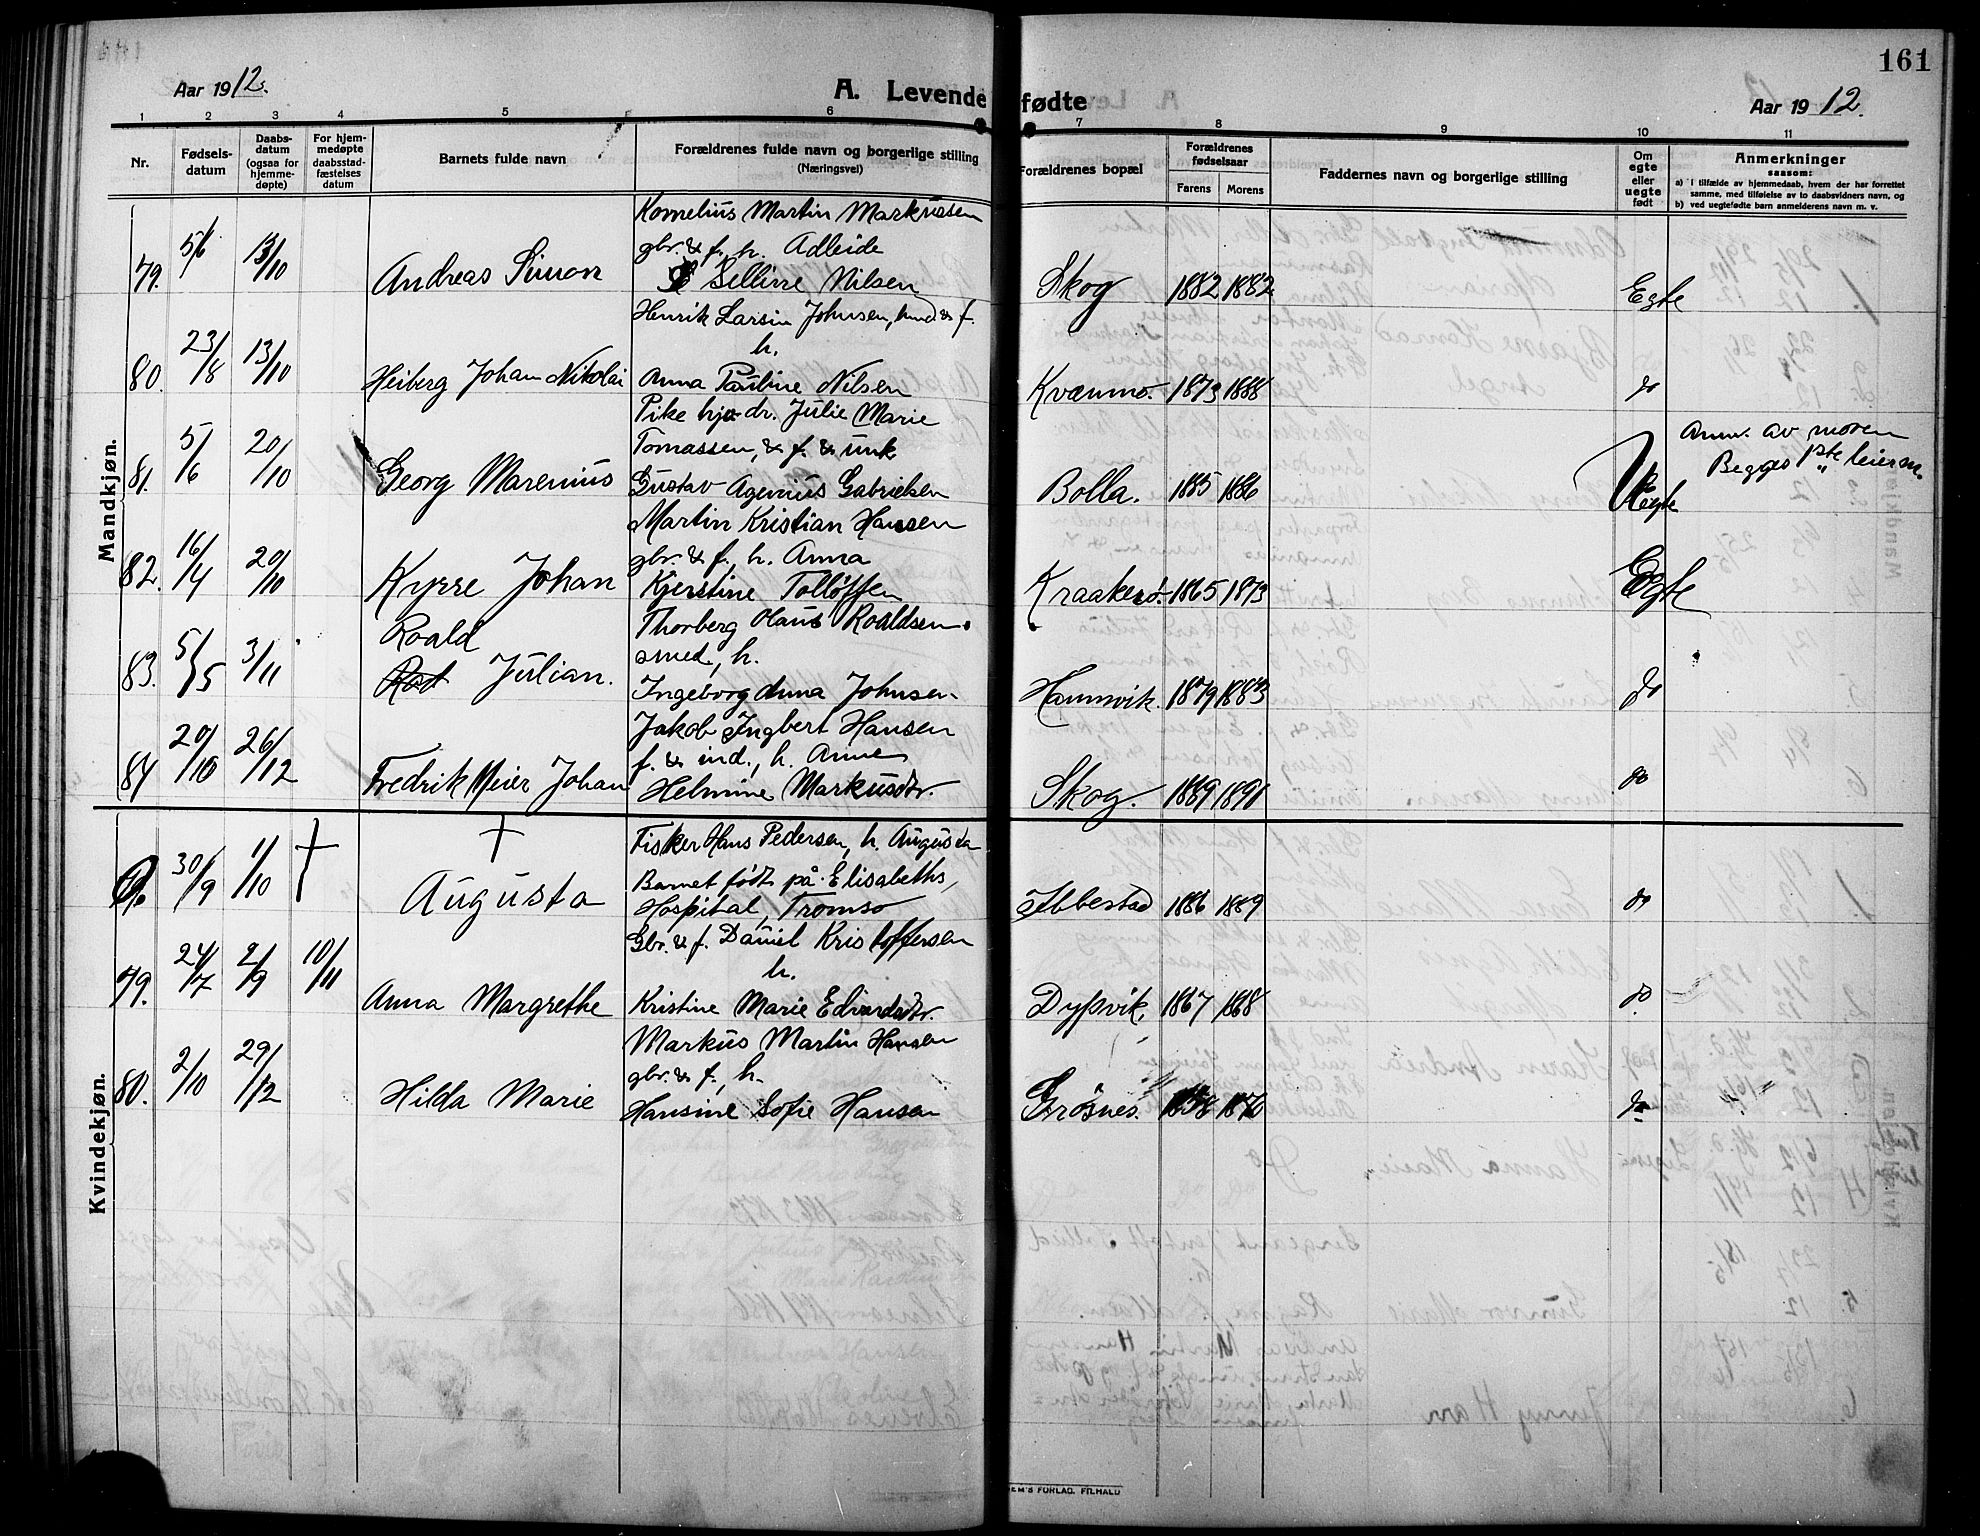 161
Aar 1912.
A. Levende fødte
Aar 1912.
1 2 3 4 5 6 7 8 9 10 11
Nr.
Fødsels-
datum
Daabs-
datum
(ogsaa for
hjemme-
døpte)
For hjem-
medøpte
daabsstad-
fæstelses
datum
Barnets fulde navn
Forældrenes fulde navn og borgerlige stilling
(Næringsvei)
Forældrenes bopæl
Forældrenes
fødselsaar
Farens Morens
Faddernes navn og borgerlige stilling
Om
egte
eller
uegte
født
Anmerkninger
saasom:
a) i tilfælde av hjemmedaab, hvem der har forrettet
samme, med tilføielse av to daabsvidners navn, og
b) ved uegtefødte barn anmelderens navn m. v.
Mandkjøn.
Kornelius Martin Markussen
gbr. & f., h. Adleide
79. 5/6 13/10 Andreas Simon Selline Nilsen Skog 1882 1882 Egte
Henrik Larsin Johnsen, ind & f.
h.
80. 23/8 13/10 Heiberg Johan Nikolai Anna Pauline Nilsen Kvænmo. 1873 1888 do
Pike hja dr. Julie Marie
Tomassen, & f. & unk
81. 5/6 20/10 Georg Marenius Gustav Agenius Gabrielsen Bolla. 1885 1886 Uegte
Anm. av moren
Begges 1ste leierm.
Martin Kristian Hansen
gbr. & f., h. Anna
82. 16/4 20/10 Kyrre Johan Kjerstine Tolløffsen Kraakerø. 1865 1873 Egte
Roald
Thorberg Olaus Roaldsen
smed, h.
83. 5/5 3/11 Julian. Ingeborg Anna Johnsen Hamnvik. 1879 1883 do
Jakob Ingbert Hansen
f. & ind., h. Anne
84 20/10 26/12 Fredrik Meier Johan Helmine Markusdtr. Skog. 1889 1891 do
Kvindekjøn.
Fisker Hans Pedersen, h. Augusta
Barnet født på Elisabeths
30/9 1/10 † † Augusta Hospital, Tromsø Ibbestad 1886 1889 do
Gbr. & f. Daniel Kristoffersen
h.
79. 24/7 2/9 10/11 Anna Margrethe Kristine Marie Edvardsdtr. Dypvik. 1867 1868 do
Markus Martin Hansen
gbr. & f., h.
80. 2/10 29/12 Hilda Marie Hansine Sofie Hansen Grøsnes. 1870 do
EM'S FORLAG. FILHALD